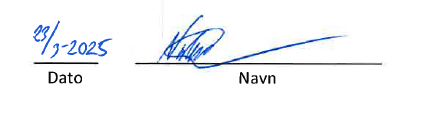 23/3-2025
Dato Navn